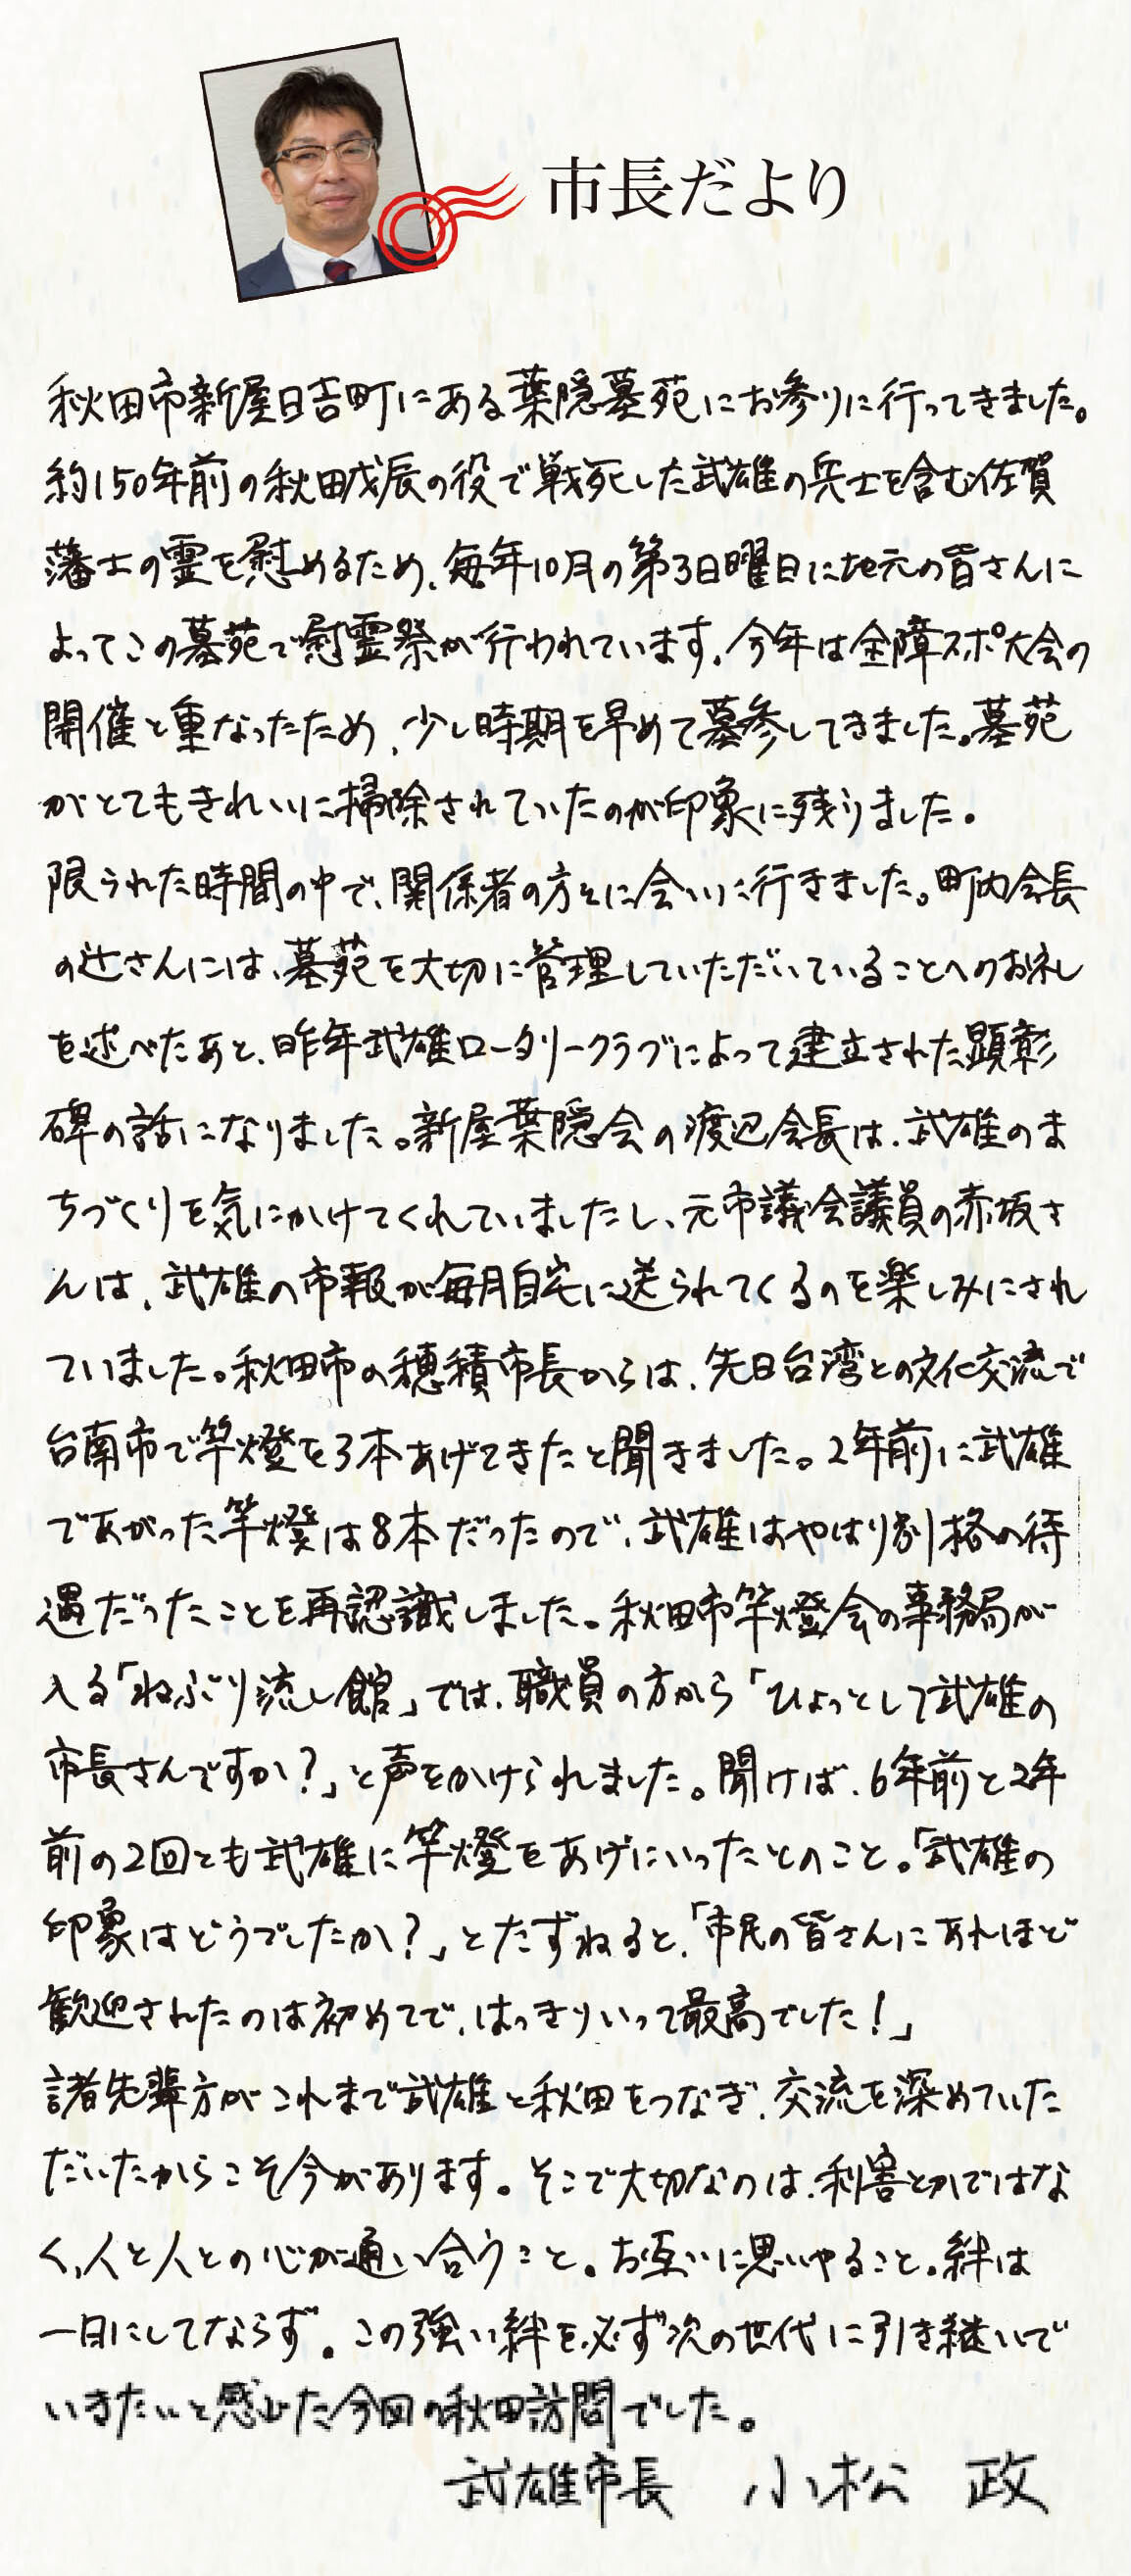 市長だより
秋田市新屋日吉町にある葉隠墓苑にお参りに行ってきました。
約150年前の秋田戊辰の役で戦死した武雄の兵士を含む佐賀
藩士の霊を慰めるため、毎年10月の第3日曜日に地元の皆さんに
よってこの墓苑で慰霊祭が行われています。今年は全障スポ大会の
開催と重なったため、少し時期を早めて墓参してきました。墓苑
がとてもきれいに掃除されていたのが印象に残りました。
限られた時間の中で、関係者の方々に会いに行きました。町内会長
の辻さんには、墓苑を大切に管理していただいていることへのお礼
を述べたあと、昨年武雄ロータリークラブによって建立された顕彰
碑の話になりました。新屋葉隠会の渡辺会長は、武雄のま
ちづくりを気にかけてくれていましたし、元市議会議員の赤坂さ
んは、武雄の市報が毎月自宅に送られてくるのを楽しみにされ
ていました。秋田市の穂積市長からは、先日台湾との文化交流で
台南市で竿燈を3本あげてきたと聞きました。2年前に武雄
であがった竿燈は8本だったので、武雄はやはり別格の待
遇だったことを再認識しました。秋田市竿燈会の事務局が
入る「ねぶり流し館」では、職員の方から「ひょっとして武雄の
市長さんですか？」と声をかけられました。聞けば、6年前と2年
前の2回とも武雄に竿燈をあげにいったとのこと。「武雄の
印象はどうでしたか？」とたずねると、「市民の皆さんにあれほど
歓迎されたのは初めてで、はっきりいって最高でした！」
諸先輩方がこれまで武雄と秋田をつなぎ、交流を深めていた
だいたからこそ今があります。そこで大切なのは、利害とかではな
く、人と人との心が通い合うこと。お互いに思いやること。絆は
一日にしてならず。この強い絆を必ず次の世代に引き継いで
いきたいと感じた今回の秋田訪問でした。
武雄市長 小松 政